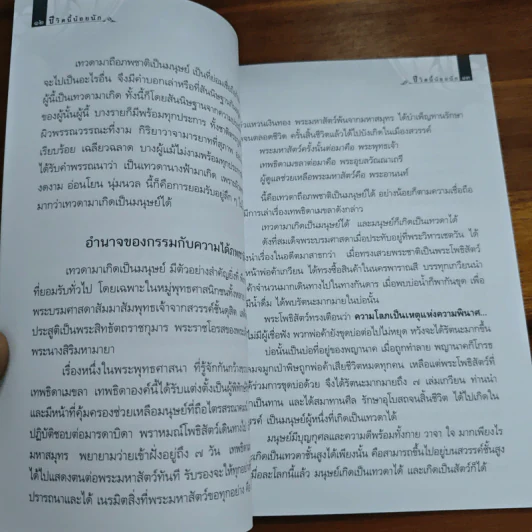 ๑๒ ชีวิตนี้น้อยนัก
เทวดามาถือภพชาติเป็นมนุษย์ เป็นที่ยอมเชื่อถือ
จะไปเป็นอะไรอื่น จึงมีคำบอกเล่าหรือที่สันนิษฐาน
ผู้นี้เป็นเทวดามาเกิด ทั้งนี้ก็โดยสันนิษฐานจากความ
ของผู้นั้นผู้นี้ บางรายก็มีพร้อมทุกประการ ทั้งชาติ
ผิวพรรณวรรณะที่งาม กิริยาวาจามารยาทที่สุภาพ
เรียบร้อย เฉลียวฉลาด บางผู้แม้ไม่งามพร้อมทุกประ
ได้รับคำพรรณนาว่า เป็นเทวดานางฟ้ามาเกิด เพราะ
งดงาม อ่อนโยน นุ่มนวล นี้ก็คือการยอมรับอยู่ลึก ๆ
มากว่าเทวดามาเกิดเป็นมนุษย์ได้
อำนาจของกรรมกับความได้ภพ
เทวดามาเกิดเป็นมนุษย์ มีตัวอย่างสำคัญยิ่ง
ที่ยอมรับทั่วไป โดยเฉพาะในหมู่พุทธศาสนิกชนทั้ง
พระบรมศาสดาสัมมาสัมพุทธเจ้าจากสวรรค์ชั้นดุสิต
ประสูติเป็นพระสิทธัตถราชกุมาร พระราชโอรสของ
พระนางสิริมหามายา
เรื่องหนึ่งในพระพุทธศาสนา ที่รู้จักกันกว้าง
เทพธิดาเมขลา เทพธิดาองค์นี้ได้รับแต่งตั้งเป็นผู้พิทักษ์
และมีหน้าที่คุ้มครองช่วยเหลือมนุษย์ที่ถือไตรสรณคมน์
ปฏิบัติชอบต่อมารดาบิดา พราหมณ์โพธิสัตว์เดินทาง
มหาสมุทร พยายามว่ายเข้าฝั่งอยู่ถึง ๗ วัน เทพธิดา
ได้ไปแสดงตนต่อพระมหาสัตว์ทันที รับรองจะให้ทุกอย่าง
ปรารถนาและได้ เนรมิตสิ่งที่พระมหาสัตว์ขอทุกอย่าง
ชีวิตนี้น้อยนัก ๑๓
แวนเงินทอง พระมหาสัตว์พ้นจากมหาสมุทร ได้บำเพ็ญทานรักษา
จนตลอดชีวิต ครั้นสิ้นชีวิตแล้วได้ไปบังเกิดในเมืองสวรรค์
พระมหาสัตว์ครั้งนั้นต่อมาคือ พระพุทธเจ้า
เทพธิดาเมขลาต่อมาคือ พระอุบลวัณณาเถรี
ผู้ดูแลช่วยเหลือพระมหาสัตว์คือ พระอานนท์
นี้คือเทวดาถือภพชาติเป็นมนุษย์ได้ อย่างน้อยก็ตามความเชื่อถือ
มีการเล่าเรื่องเทพธิดาเมขลาดังกล่าว
เทวดามาเกิดเป็นมนุษย์ได้ และมนุษย์ก็เกิดเป็นเทวดาได้
ดังที่สมเด็จพระบรมศาสดาเมื่อประทับอยู่ที่พระวิหารเชตวัน ได้
นำเรื่องในอดีตมาสาธกว่า เมื่อทรงเสวยพระชาติเป็นพระโพธิสัตว์
หน้าพ่อค้าเกวียน ได้ทรงซื้อสินค้าในนครพาราณสี บรรทุกเกวียนนำ
จำนวนมากเดินทางไปในทางกันดาร เมื่อพบบ่อน้ำก็พากันขุด เพื่อ
มีน้ำดื่ม ได้พบรัตนะมากมายในบ่อนั้น
พระโพธิสัตว์ทรงเตือนว่า ความโลภเป็นเหตุแห่งความพินาศ...
ไม่มีผู้เชื่อฟัง พวกพ่อค้ายังขุดบ่อต่อไปไม่หยุด หวังจะได้รัตนะมากขึ้น
บ่อนั้นเป็นบ่อที่อยู่ของพญานาค เมื่อถูกทำลาย พญานาคก็โกรธ
ลมจมูกเป่าพิษถูกพ่อค้าเสียชีวิตหมดทุกคน เหลือแต่พระโพธิสัตว์ที่
ได้ร่วมการขุดบ่อด้วย จึงได้รัตนะมากมายถึง ๗ เล่มเกวียน ท่านนำ
เป็นทาน และได้สมาทานศีล รักษาอุโบสถจนสิ้นชีวิต ได้ไปเกิดใน
สวรรค์ เป็นมนุษย์ผู้หนึ่งที่เกิดเป็นเทวดาได้
มนุษย์มีบุญกุศลและความดีพร้อมทั้งกาย วาจา ใจ มากเพียงไร
เกิดเป็นเทวดาชั้นสูงได้เพียงนั้น คือสามารถขึ้นไปอยู่บนสวรรค์ชั้นสูง
เมื่อละโลกนี้แล้ว มนุษย์เกิดเป็นเทวดาได้ และเกิดเป็นสัตว์ก็ได้